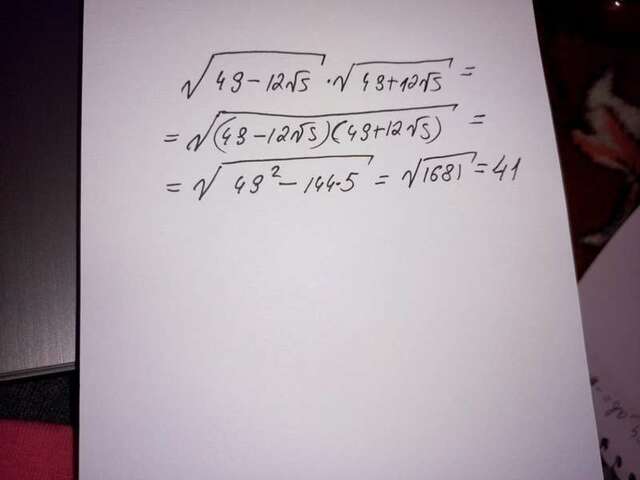 √(49-12√5) · √(49+12√5) =
= √((49-12√5)(49+12√5)) =
= √(49² - 144·5) = √1681 = 41